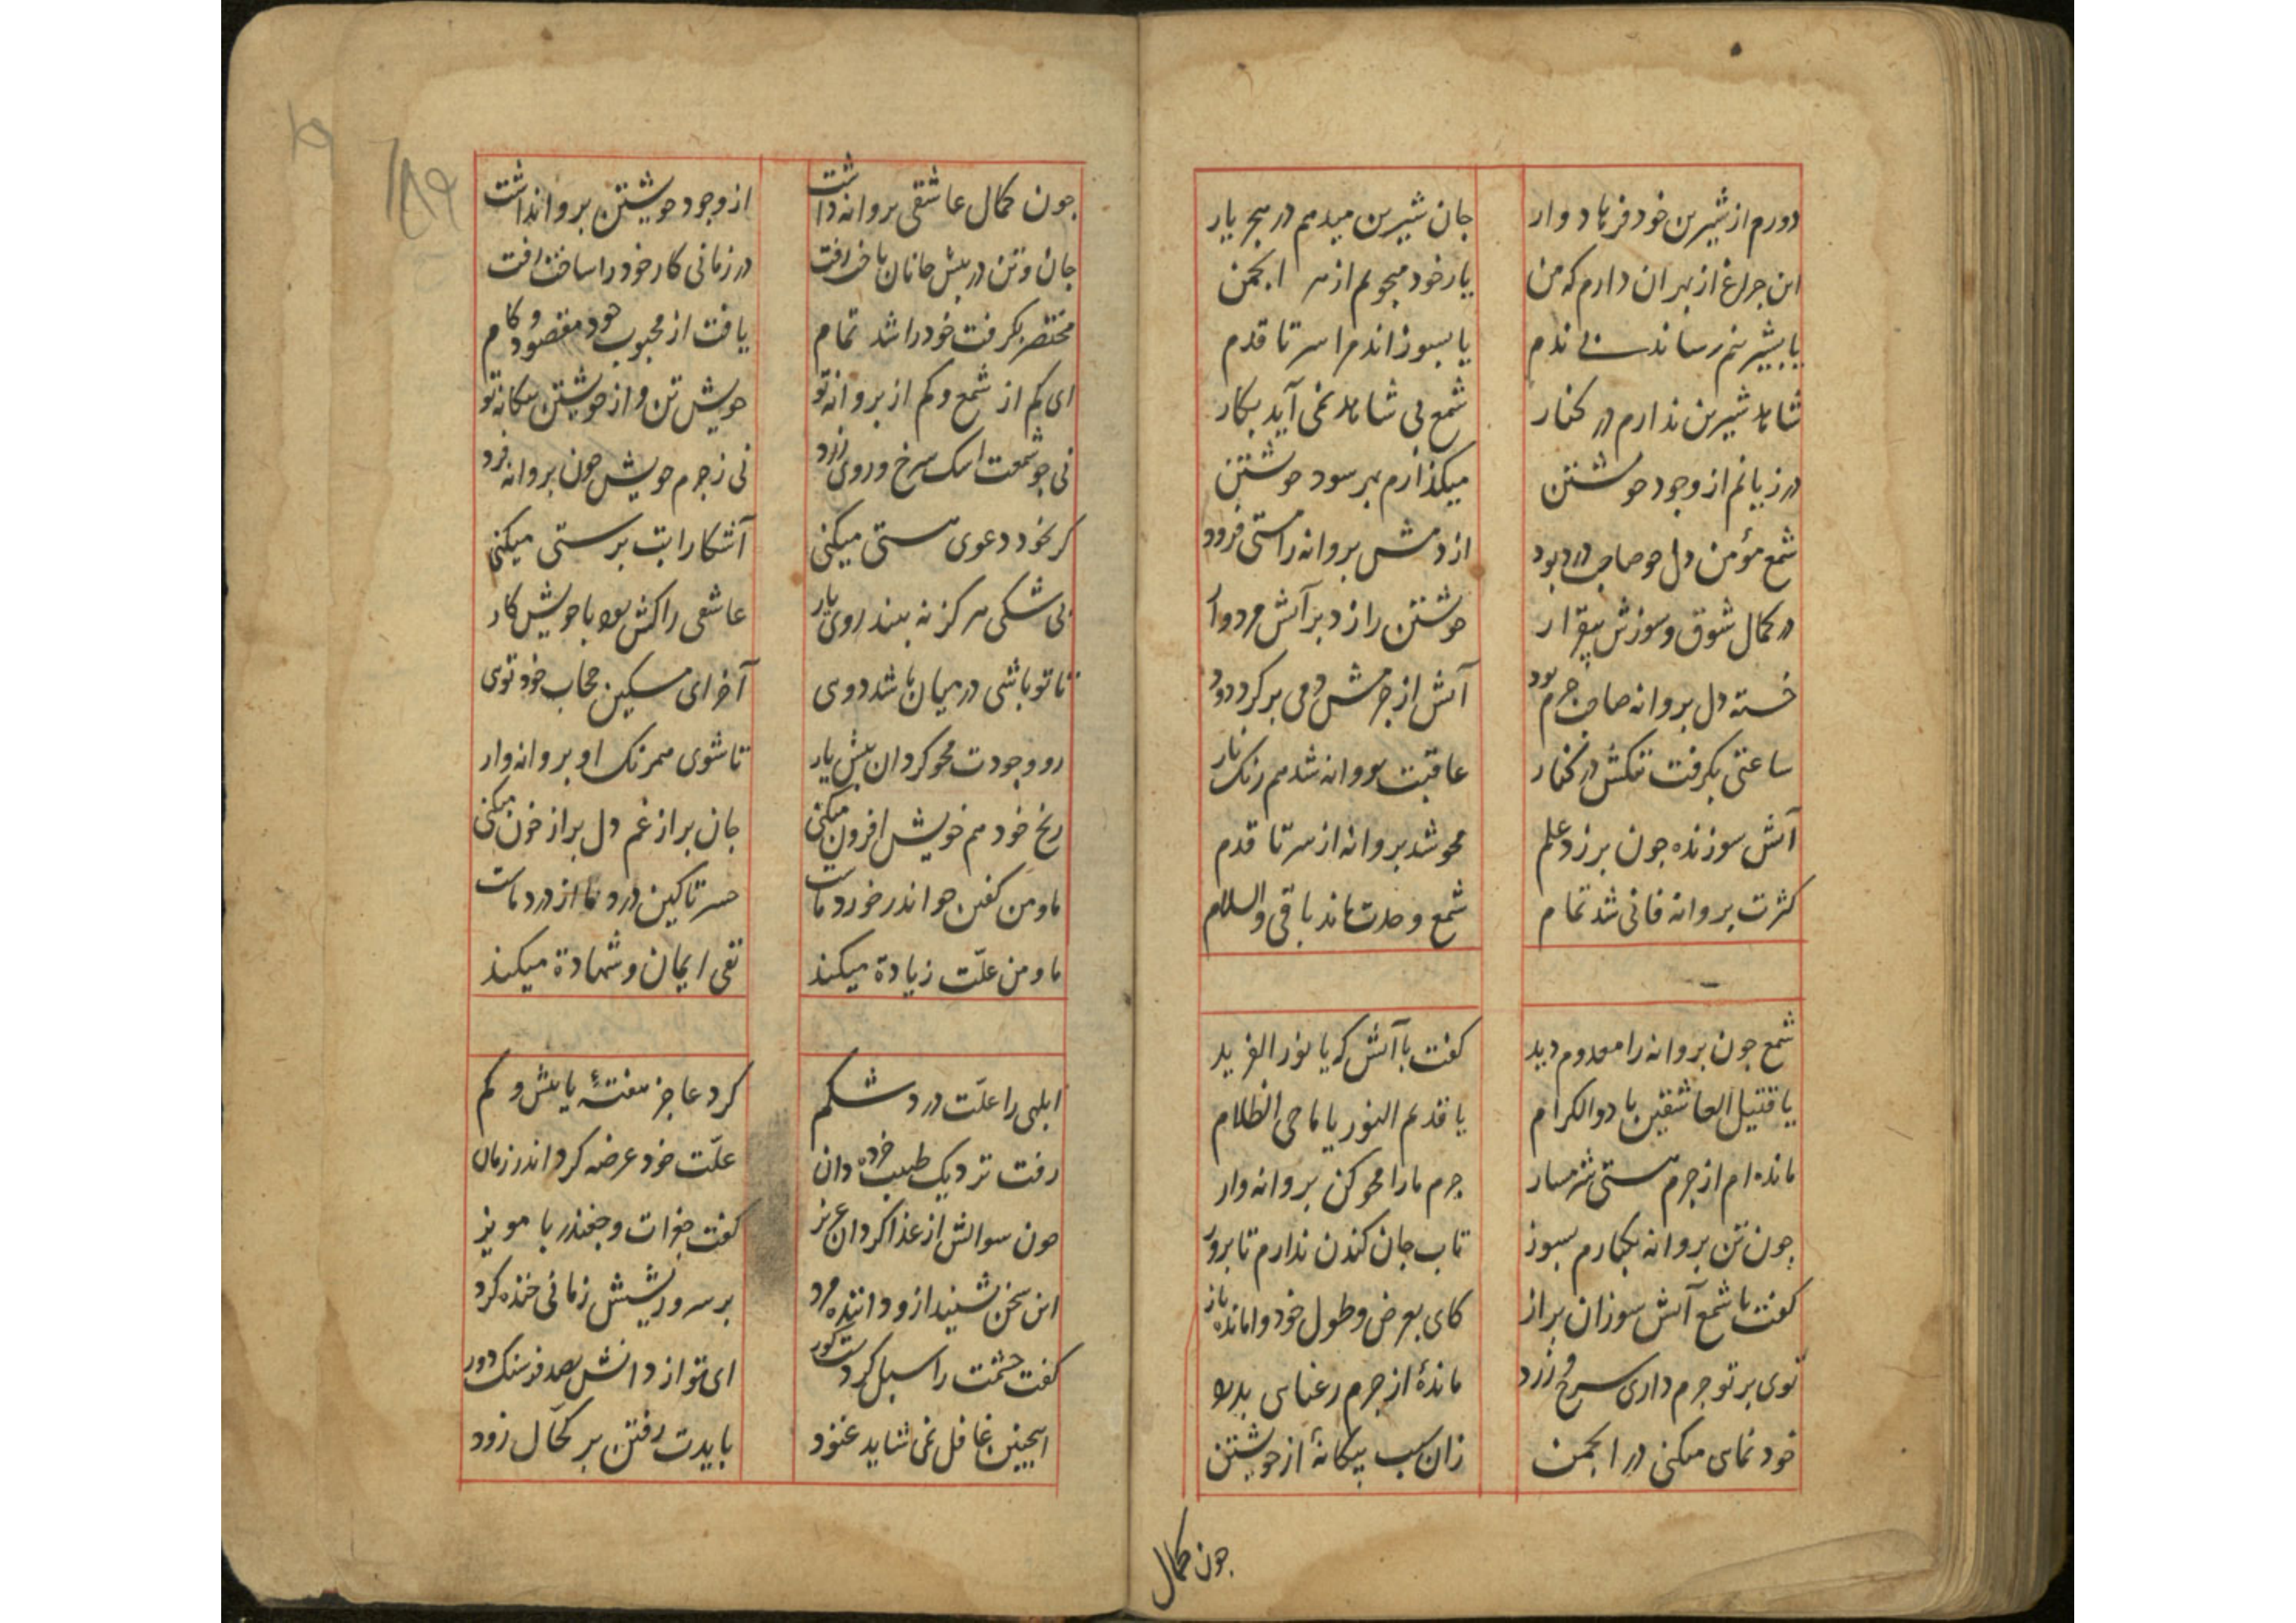 دورم از شیرین خود فرهاد وار جان شیرین میدهم در هجر یار
این چراغ از بهر ان دارم که من یار خود میجویم از هر انجمن
یا بشیرینم رساند بی ندم یا بسوزاند مرا سر تا قدم
شاهد شیرین ندارم در کنار شمع بی شاهد نمی آید بکار
در زیانم از وجود خویشتن میکذارم بهر سود خویشتن
شمع مؤمن دل چو صاحب درد بود از دمش پروانه را هستی فزود
در کمال شوق و سوزش بیقرار خویشتن را زد بر آتش مردوار
خسته دل پروانه صاحب جرم بود آتش از جرمش دمی برکرد دود
ساعتی بکرفت تنکش در کنار عاقبت پروانه شد همرنک نار
آتش سوزنده چون بر زد علم محو شد پروانه از سر تا قدم
کثرت پروانه فانی شد تمام شمع وحدت ماند باقی والسلام
شمع چون پروانه را معدوم دید کفت با آتش که یا نور الفرید
یا قتیل العاشقین یا ذوالکرام یا قدیم النور یا ماحی الظلام
مانده ام از جرم هستی شرمسار جرم ما را محو کن پروانه وار
چون تن پروانه یکبارم بسوز تاب جان کندن ندارم تا بروز
کفت با شمع آتش سوزان براز کای بعرض و طول خود وامانده باز
توی بر تو جرم داری سرخ و زرد ماندهٔ از جرم رعنایی
خود نمای میکنی در انجمن زان سبب بیکانهٔ از خویشتن
چون کمال
چون کمال عاشقی پروانه داشت از وجود خویشتن پروا نداشت
جان و تن در پیش جانان باخت رفت در زمانی کار خود را ساخت رفت
مختصر بکرفت خود را شد تمام یافت از محبوب خود مقصود و کام
ای کم از شمع و کم از پروانه تو خویش تن و از خویشتن بیکانه تو
نی چو شمعت اشک سرخ و روی زرد نی ز جرم خویش چون پروانه فرد
کر بخود دعوی هستی میکنی آشکارا بت پرستی میکنی
بی شکی هرکز نه بیند روی یار عاشقی را کش بود با خویش کار
تا تو باشی در میان باشد دوی آخر ای مسکین حجاب خود توی
رو وجودت محو کردان پیش یار تا شوی همرنک او پروانه وار
رنج خود هم خویش افزون میکنی جان پر از غم دل پر از خون میکنی
ما و من کفتن چو اندر خورد ماست سر تا کین درد ما از درد ماست
ما و من علّت زیادة میکند نفی ایمان و شهادة میکند
ابلهی را علّت درد شکم کرد عاجز هفتهٔ یا بیش و کم
رفت نزدیک طبیب خرده دان علّت خود عرضه کرد اندر زمان
چون سوالش از غذا کرد ان عزیز کفت جغرات و چغندر با مویز
این سخن بشنید ازو داننده مرد بر سر و ریشش زمانی خنده کرد
کفت چشمت را سبل کردست کور ای تو از دانش بصد فرسنک دور
اینچنین غافل نمی شاید غنود بایدت رفتن بر کحّال زود